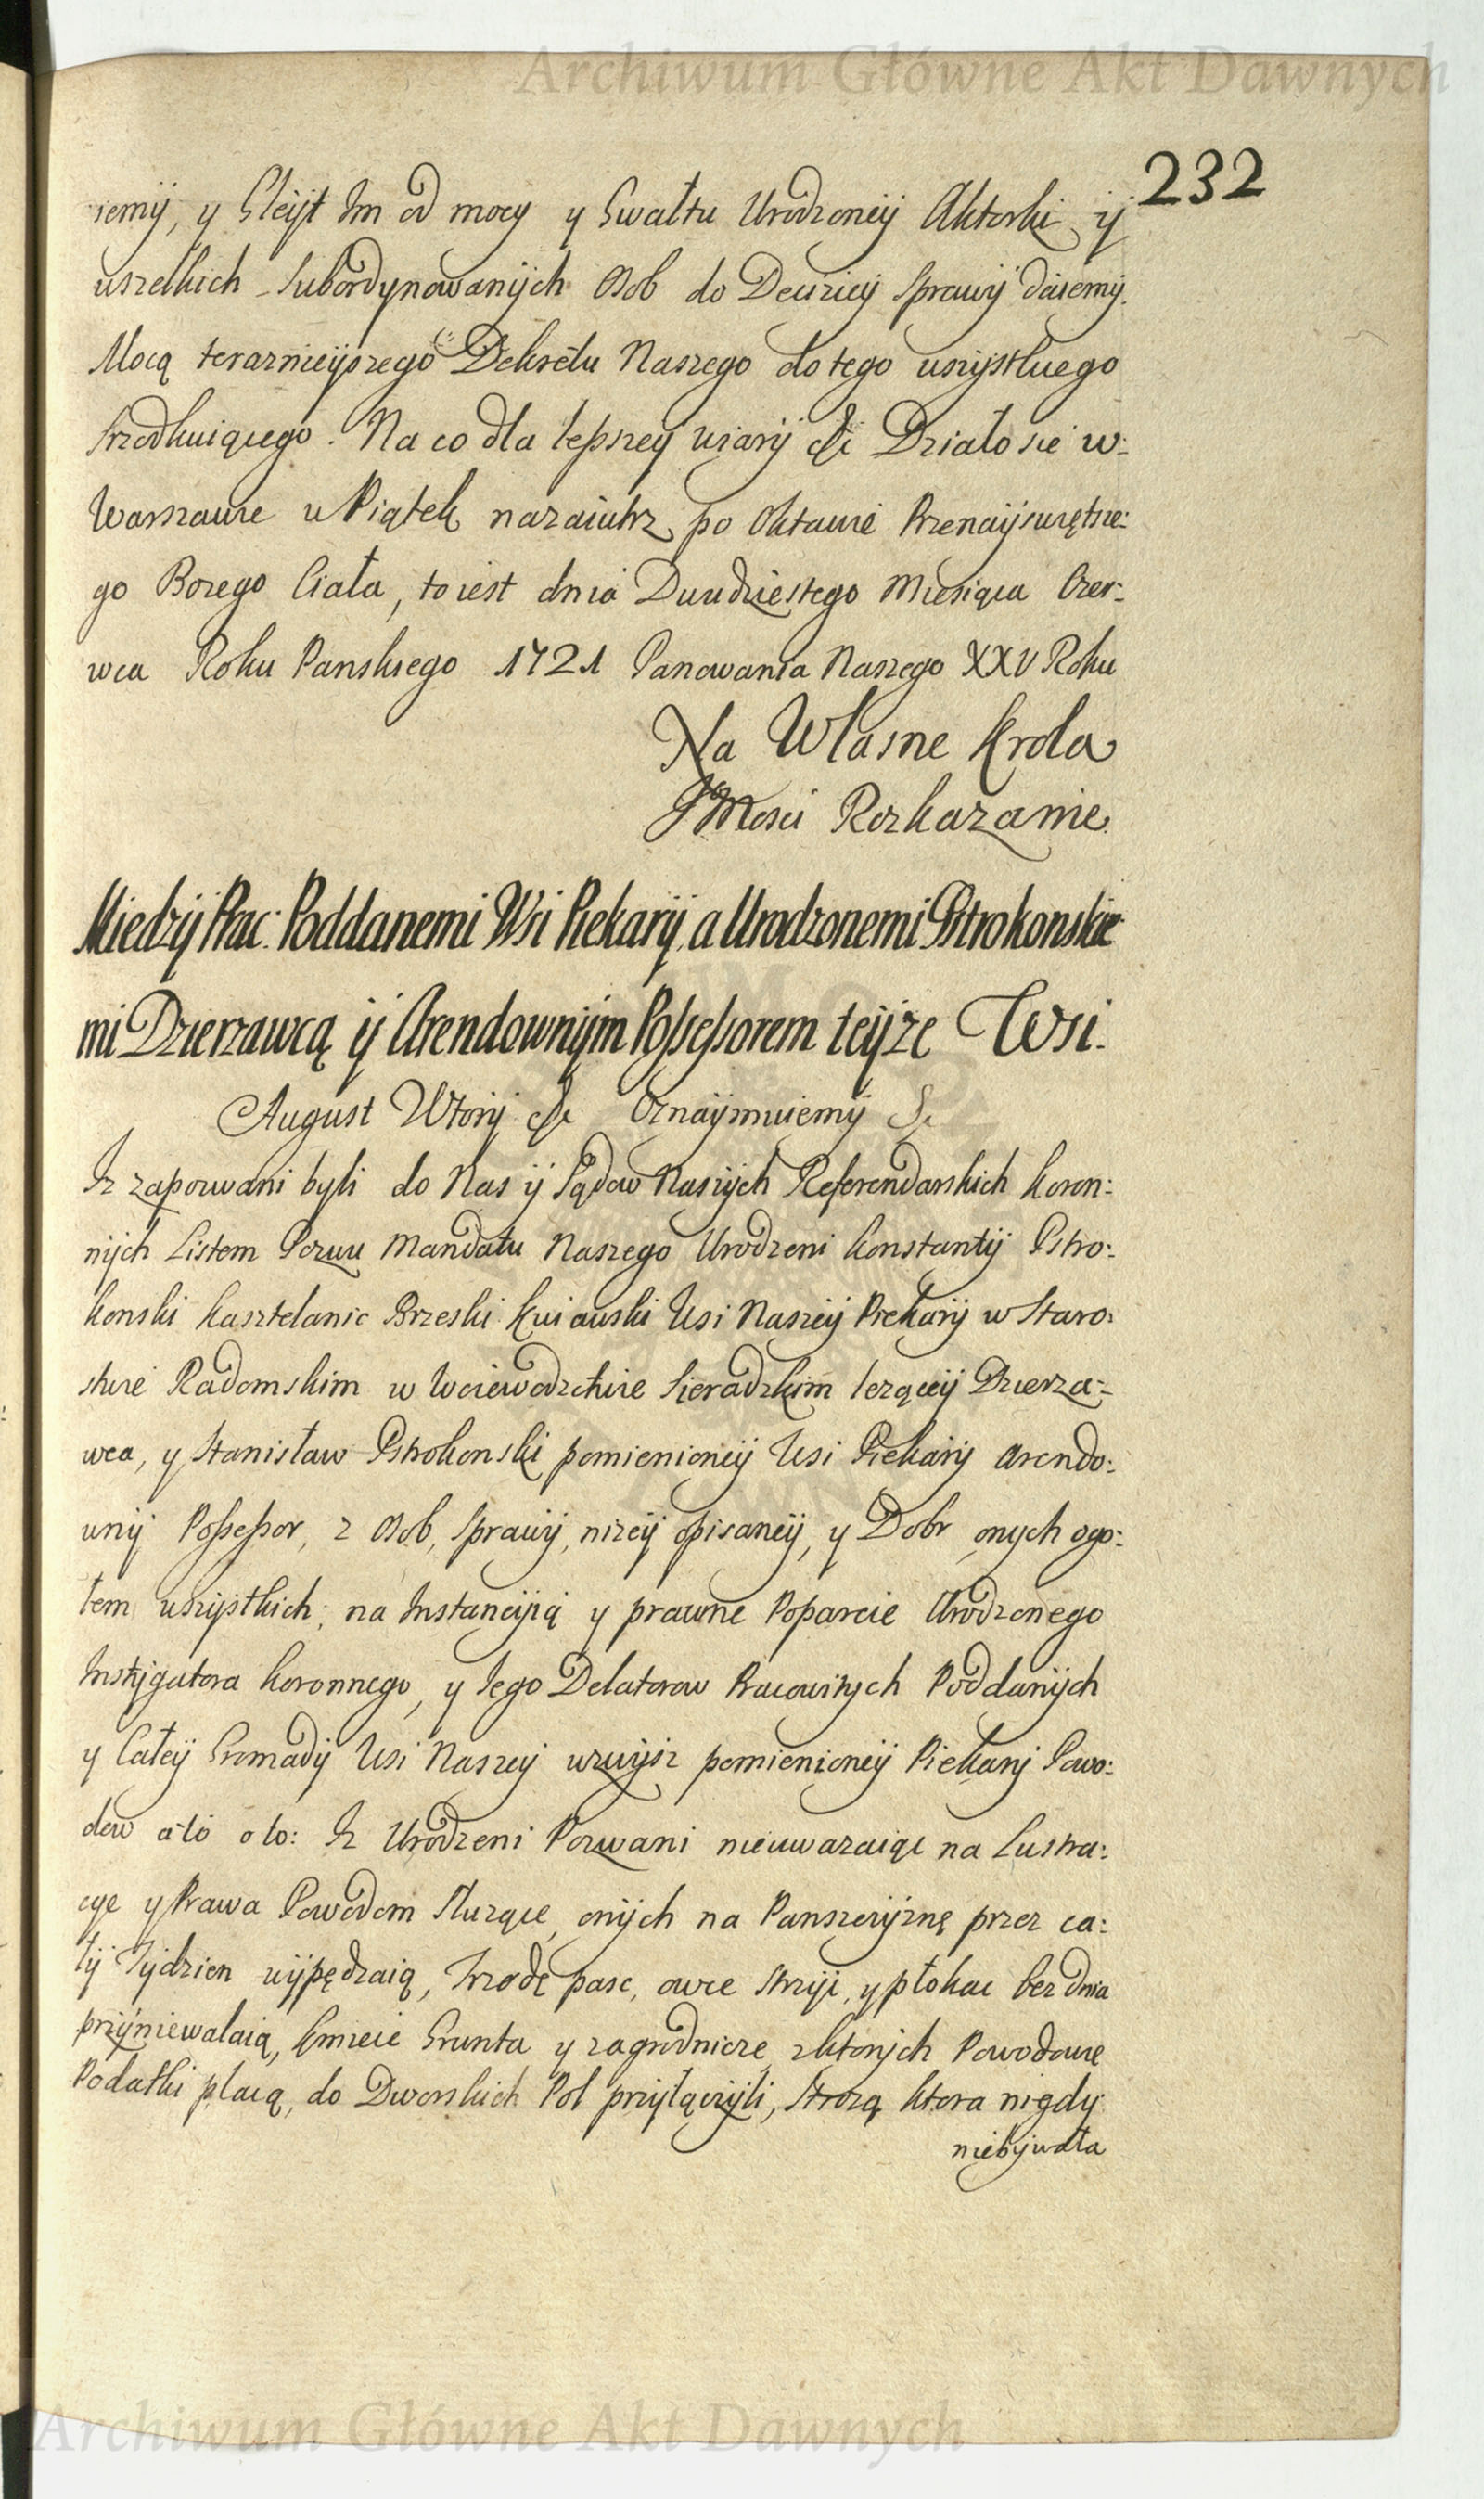 Archiwum Główne Akt Dawnych
232
iemÿ, y Gleÿt Im od mocy y Gwałtu Urodzoneÿ Aktorki ÿ
wszelkich Subordynowanÿch Osob do Decizieÿ Sprawÿ daiemÿ.
Mocą teraznieÿszego Dekretu Naszego do tego wszÿstkiego
srzodkuiącego. Na co dla lepszey wiarÿ &c Działo sie w:
Warszawie w Piątek nazaiutrz po Oktawie Przenaÿswiętsze:
go Bozego Ciała, to iest dnia Dwudziestego Miesiąca Czer:
wca Roku Panskiego 1721 Panowania Naszego XXV Roku
Na Własne Krola
JMosci Rozkazanie.
Miedzÿ Prac: Poddanemi Wsi Piekarÿ, a Urodzonemi Pstrokonskie
mi Dzierzawcą ÿ Arendownÿm Possessorem teÿze Wsi.
August Wtorÿ &c Oznaÿmuiemÿ &c
Iz zapozwani byli do Nas ÿ Sądow Naszÿch Referendarskich Koron:
nÿch Listem Pozwu Mandatu Naszego Urodzeni Konstantÿ Pstro:
konski Kasztelanic Brzeski Kuiawski Wsi Naszeÿ Piekarÿ w Staro:
stwie Radomskim w Woiewodztwie Sieradzkim leząceÿ Dzierza:
wca, y Stanisław Pstrokonski pomienioneÿ Wsi Piekarÿ arendo:
wnÿ Possessor, z Osob, Sprawÿ, nizeÿ opisaneÿ, y Dobr onych ogo:
łem wszÿstkich, na Instancÿią y prawne Poparcie Urodzonego
Instÿgatora Koronnego, y Iego Delatorow Pracowitych Poddanÿch
y Całeÿ Gromadÿ Wsi Naszey wzwÿsz pomienioneÿ Piekarÿ Powo:
dow a to o to: Iz Urodzeni Pozwani nieuwazaiąc na Lustra:
cye y Prawa Powodom słuzące, onÿch na Panszczÿznę przez ca:
łÿ Tÿdzien wÿpędzaią, Trzodę pasc, owce strzÿc, y płokac bez dnia
przÿniewalaią, Kmiecie Grunta y zagrodnicze z ktorÿch Powodowie
Podatki płacą, do Dworskich Pol przÿłączÿli, Strozą ktora nigdy
niebÿwała
Archiwum Główne Akt Dawnych